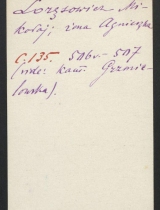 Loręsowicz Mi-
kołaj; żona Agnieszka
C. 135. 506v.- 507
(vide: kaw. Grzmie-
lowska).